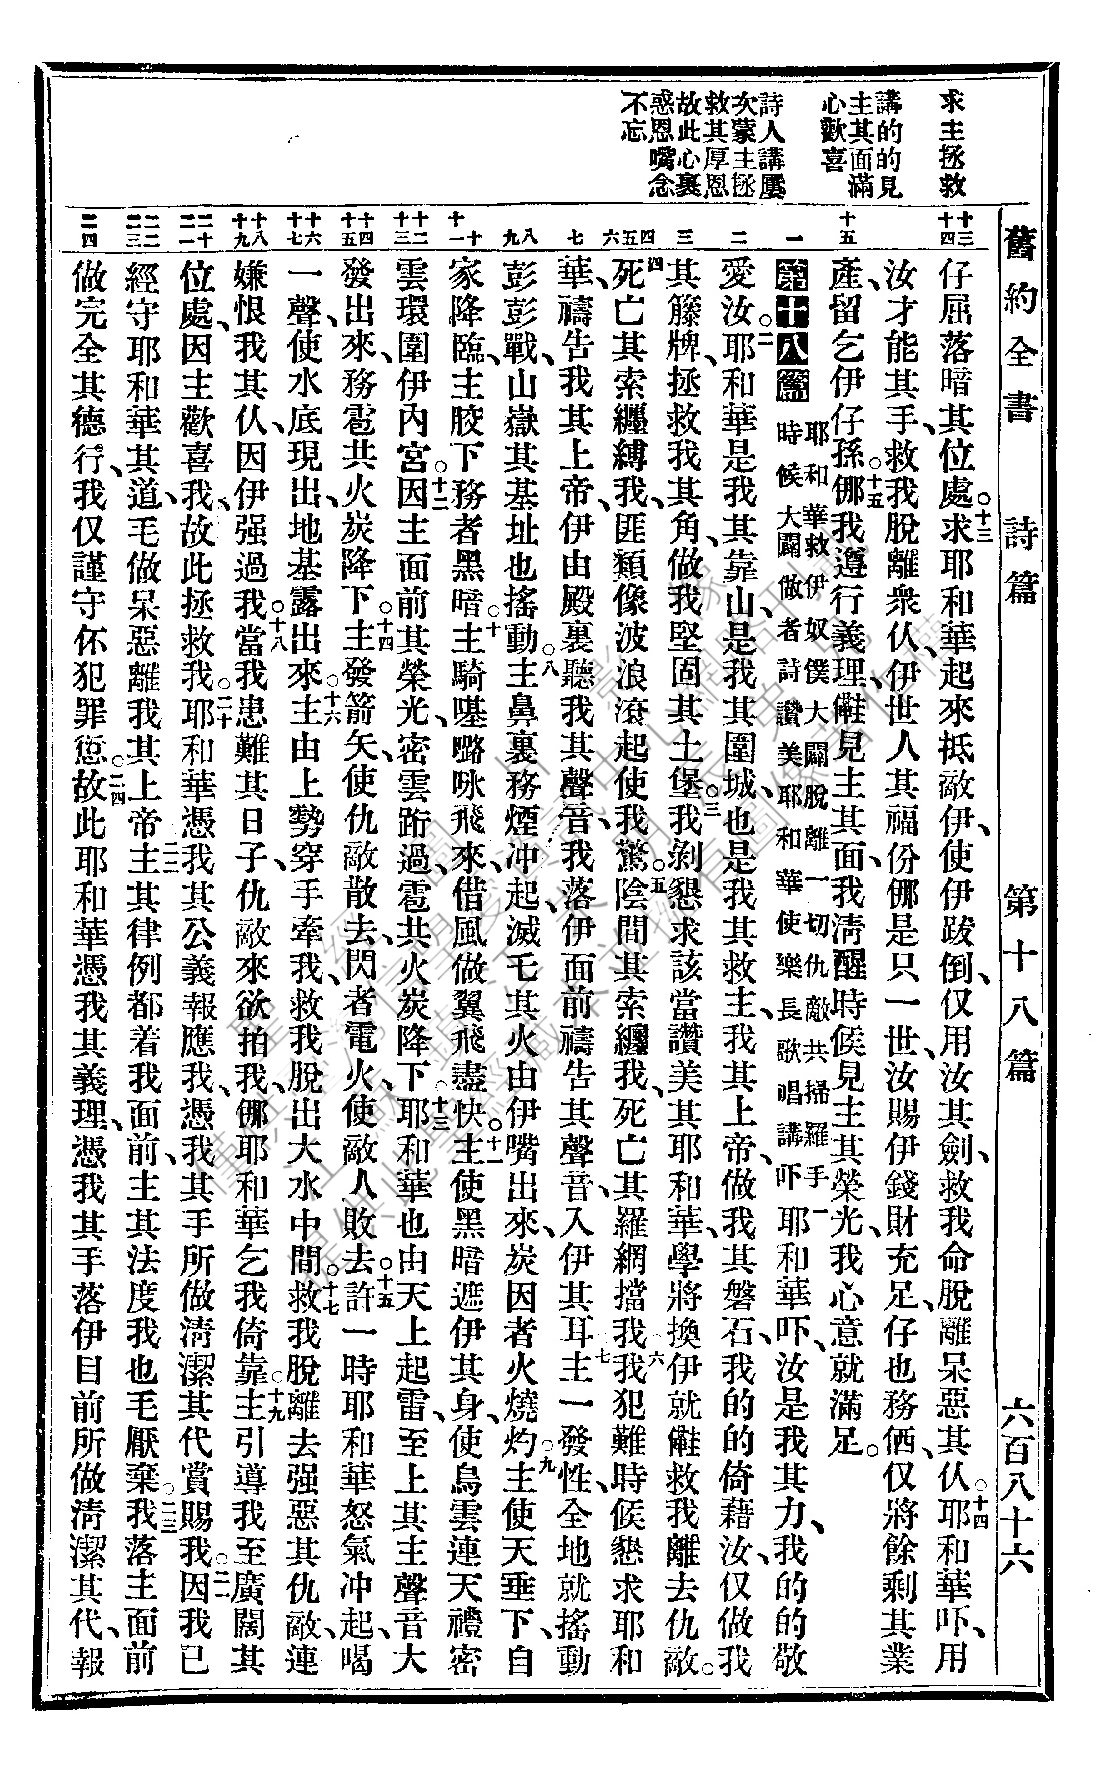 舊約全書 詩篇 第十八篇 六百八十六
求主拯救
講的的見
主其面滿
心歡喜
詩人講屢
次蒙主拯
救其厚恩
故此心裏
惑恩嘴念
不忘
十三 十四
十五
一
二
三
四 五 六
七
八 九
十 十一
十二 十三
十四 十五
十六 十七
十八 十九
二十 二一
二二 二三
二四
仔屈落暗其位處○十三求耶和華起來抵敵伊、使伊跋倒、仅用汝其劍、救我命脫離呆惡其仈○十四耶和華吓、用
汝才能其手、救我脫離衆仈、伊世人其福份㑚是只一世、汝賜伊錢財充足、仔也務㑚、仅將餘剩其業
產、留乞伊仔孫㑚○十五我遵行義理、㒰見主其面、我淸醒時候、見主其榮光、我心意就滿足。
第十八篇 耶和華救伊奴僕大闢脫離一切仇敵共掃羅手
時候大闢做者詩讚美耶和華使樂長歌唱講吓 一耶和華吓、汝是我其力、我的的敬
愛汝○二耶和華是我其靠山、是我其圍城、也是我其救主、我其上帝、做我其磐石、我的的倚藉汝、仅做我
其籐牌、拯救我其角、做我堅固其土堡○三我剝懇求該當讚美其耶和華、學將換伊就㒰救我離去仇敵。
四死亡其索纏縛我、匪類像波浪滾起使我驚○五陰間其索纏我、死亡其羅網擋我○六我犯難時候懇求耶和
華、禱告我其上帝、伊由殿裏聽我其聲音、我落伊面前禱告其聲音、入伊其耳○七主一發性、全地就搖動
彭彭戰、山嶽其基址也搖動○八主鼻裏務煙冲起、滅乇其火由伊嘴出來、炭因者火燒灼○九主使天垂下、自
家降臨、主骹下務者黑暗○十主騎𡀔㗉咏飛來、借風做翼飛盡快○十一主使黑暗遮伊其身、使烏雲連天禮密
雲環圍伊內宮○十二因主面前其榮光、密雲跨過、雹共火炭降下○十三耶和華也由天上起雷、至上其主聲音大
發出來、務雹共火炭降下○十四主發箭矢、使仇敵散去、閃者電火、使敵人敗去○十五許一時耶和華怒氣冲起、喝
一聲、使水底現出、地基露出來○十六主由上勢穿手牽我、救我脫出大水中間○十七救我脫離去强惡其仇敵、連
嫌恨我其仈、因伊强過我○十八當我患難其日子、仇敵來欲拍我、㑚耶和華乞我倚靠○十九主引導我至廣闊其
位處、因主歡喜我、故此拯救我○二十耶和華憑我其公義報應我、憑我其手所做淸潔其代賞賜我○二一因我已
經守耶和華其道、毛做呆惡離我其上帝○二二主其律例都着我面前、主其法度我也毛厭棄○二三我落主面前
做完全其德行、我仅謹守怀犯罪愆○二四故此耶和華憑我其義理、憑我其手落伊目前所做淸潔其代、報